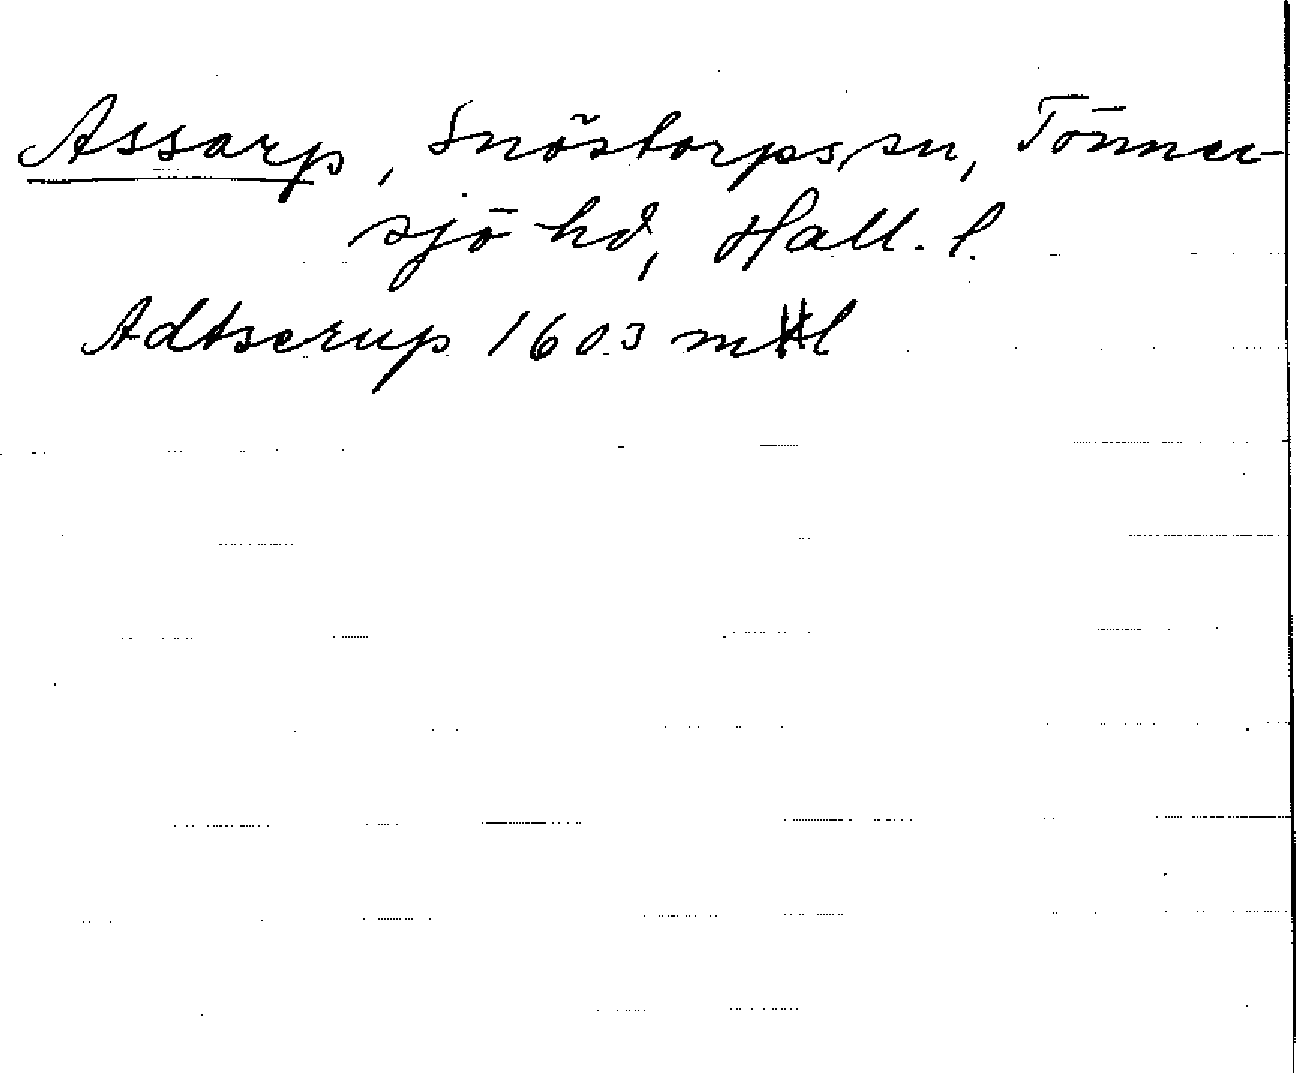 Assarp, Snöstorps sn, Tönner-
sjö hd, Hall. l.
Adtserup 1603